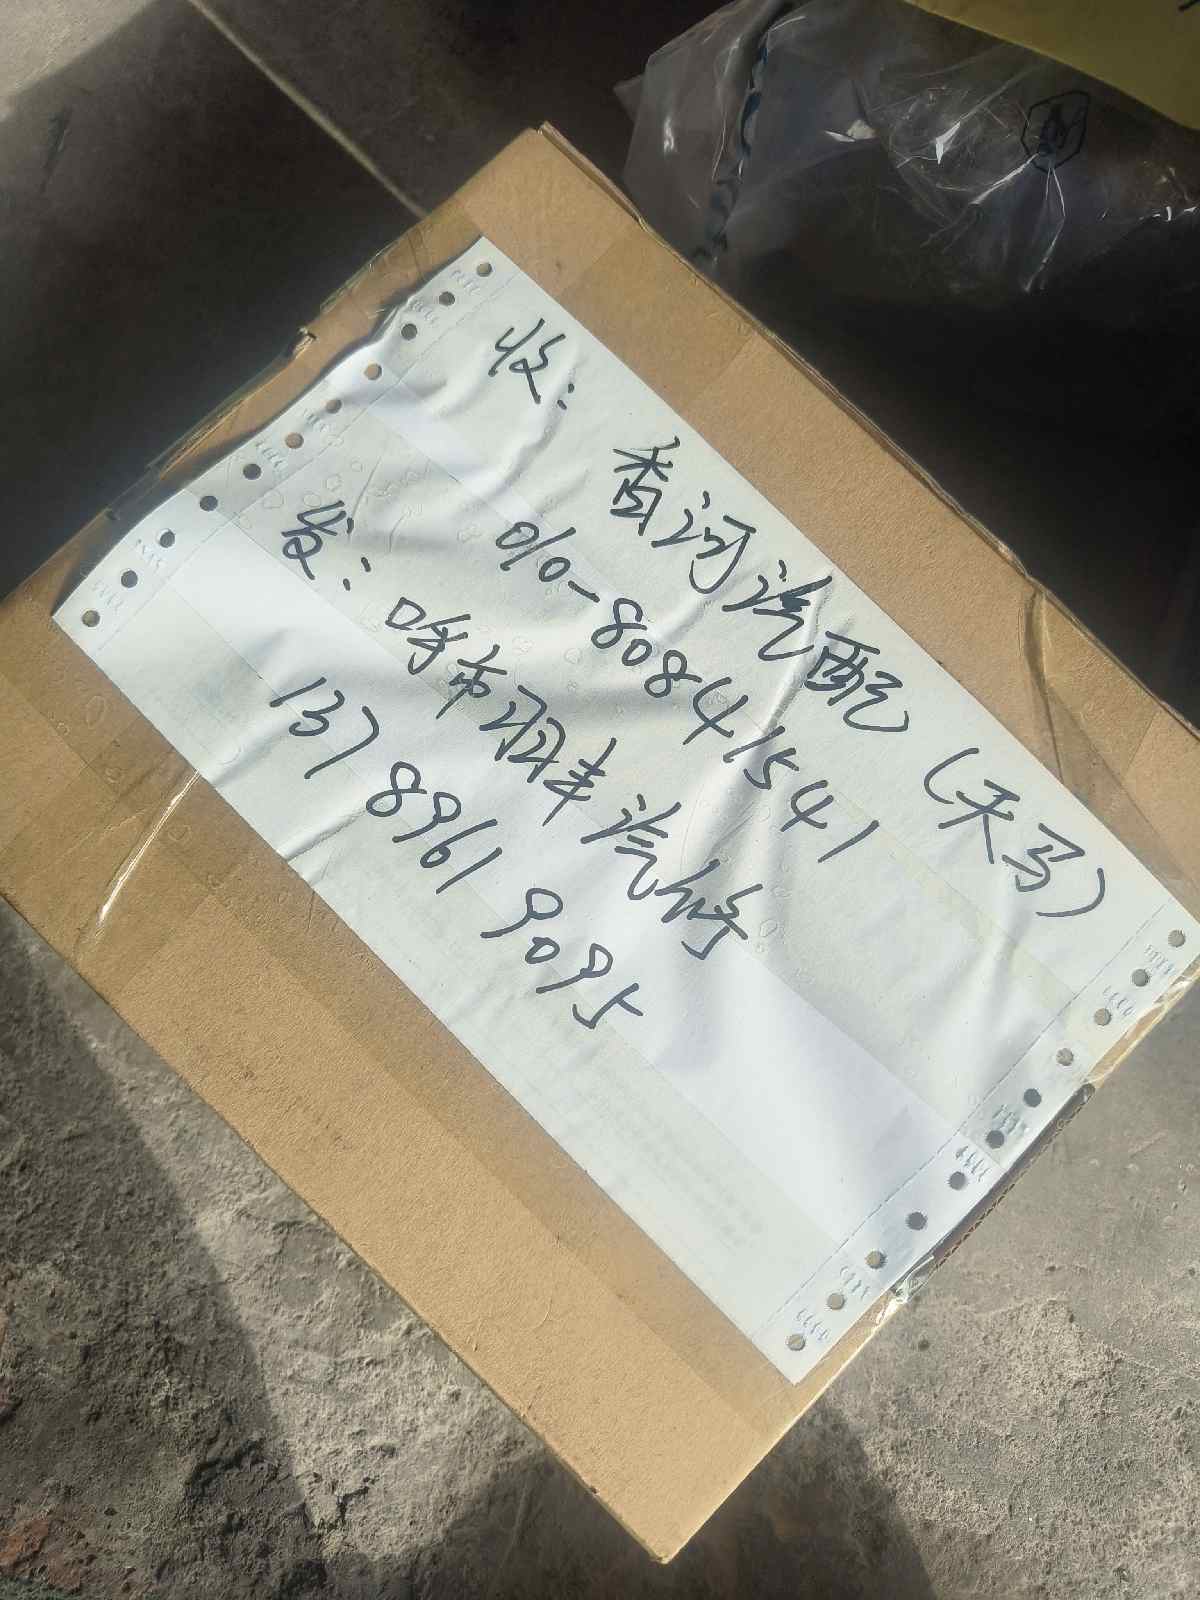 收: 香河汽配(天马)
010-80841541
发: 哈市冠丰汽修
137 8961 9095